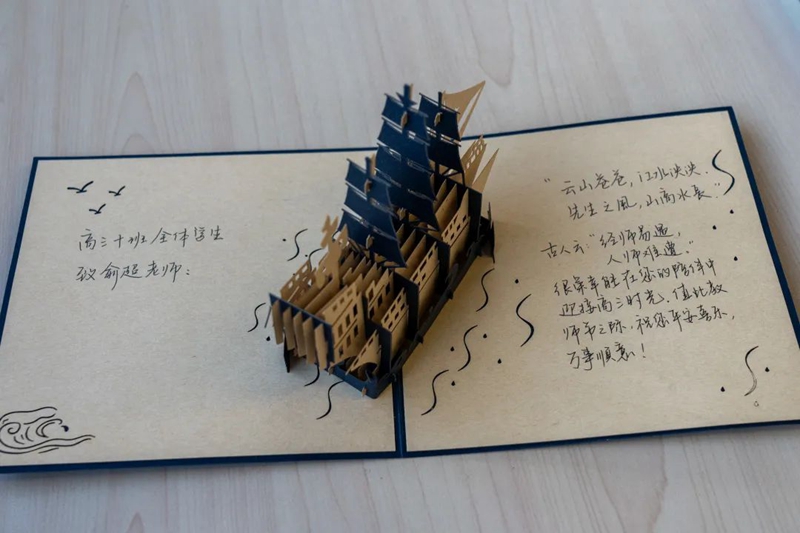 高三十班全体学生
致俞超老师：
“云山苍苍，江水泱泱.
先生之风，山高水长”
古人云“经师易遇，
人师难遭.”
很荣幸能在您的陪伴中
迎接高三时光，值此教
师节之际，祝您平安喜乐，
万事顺意！